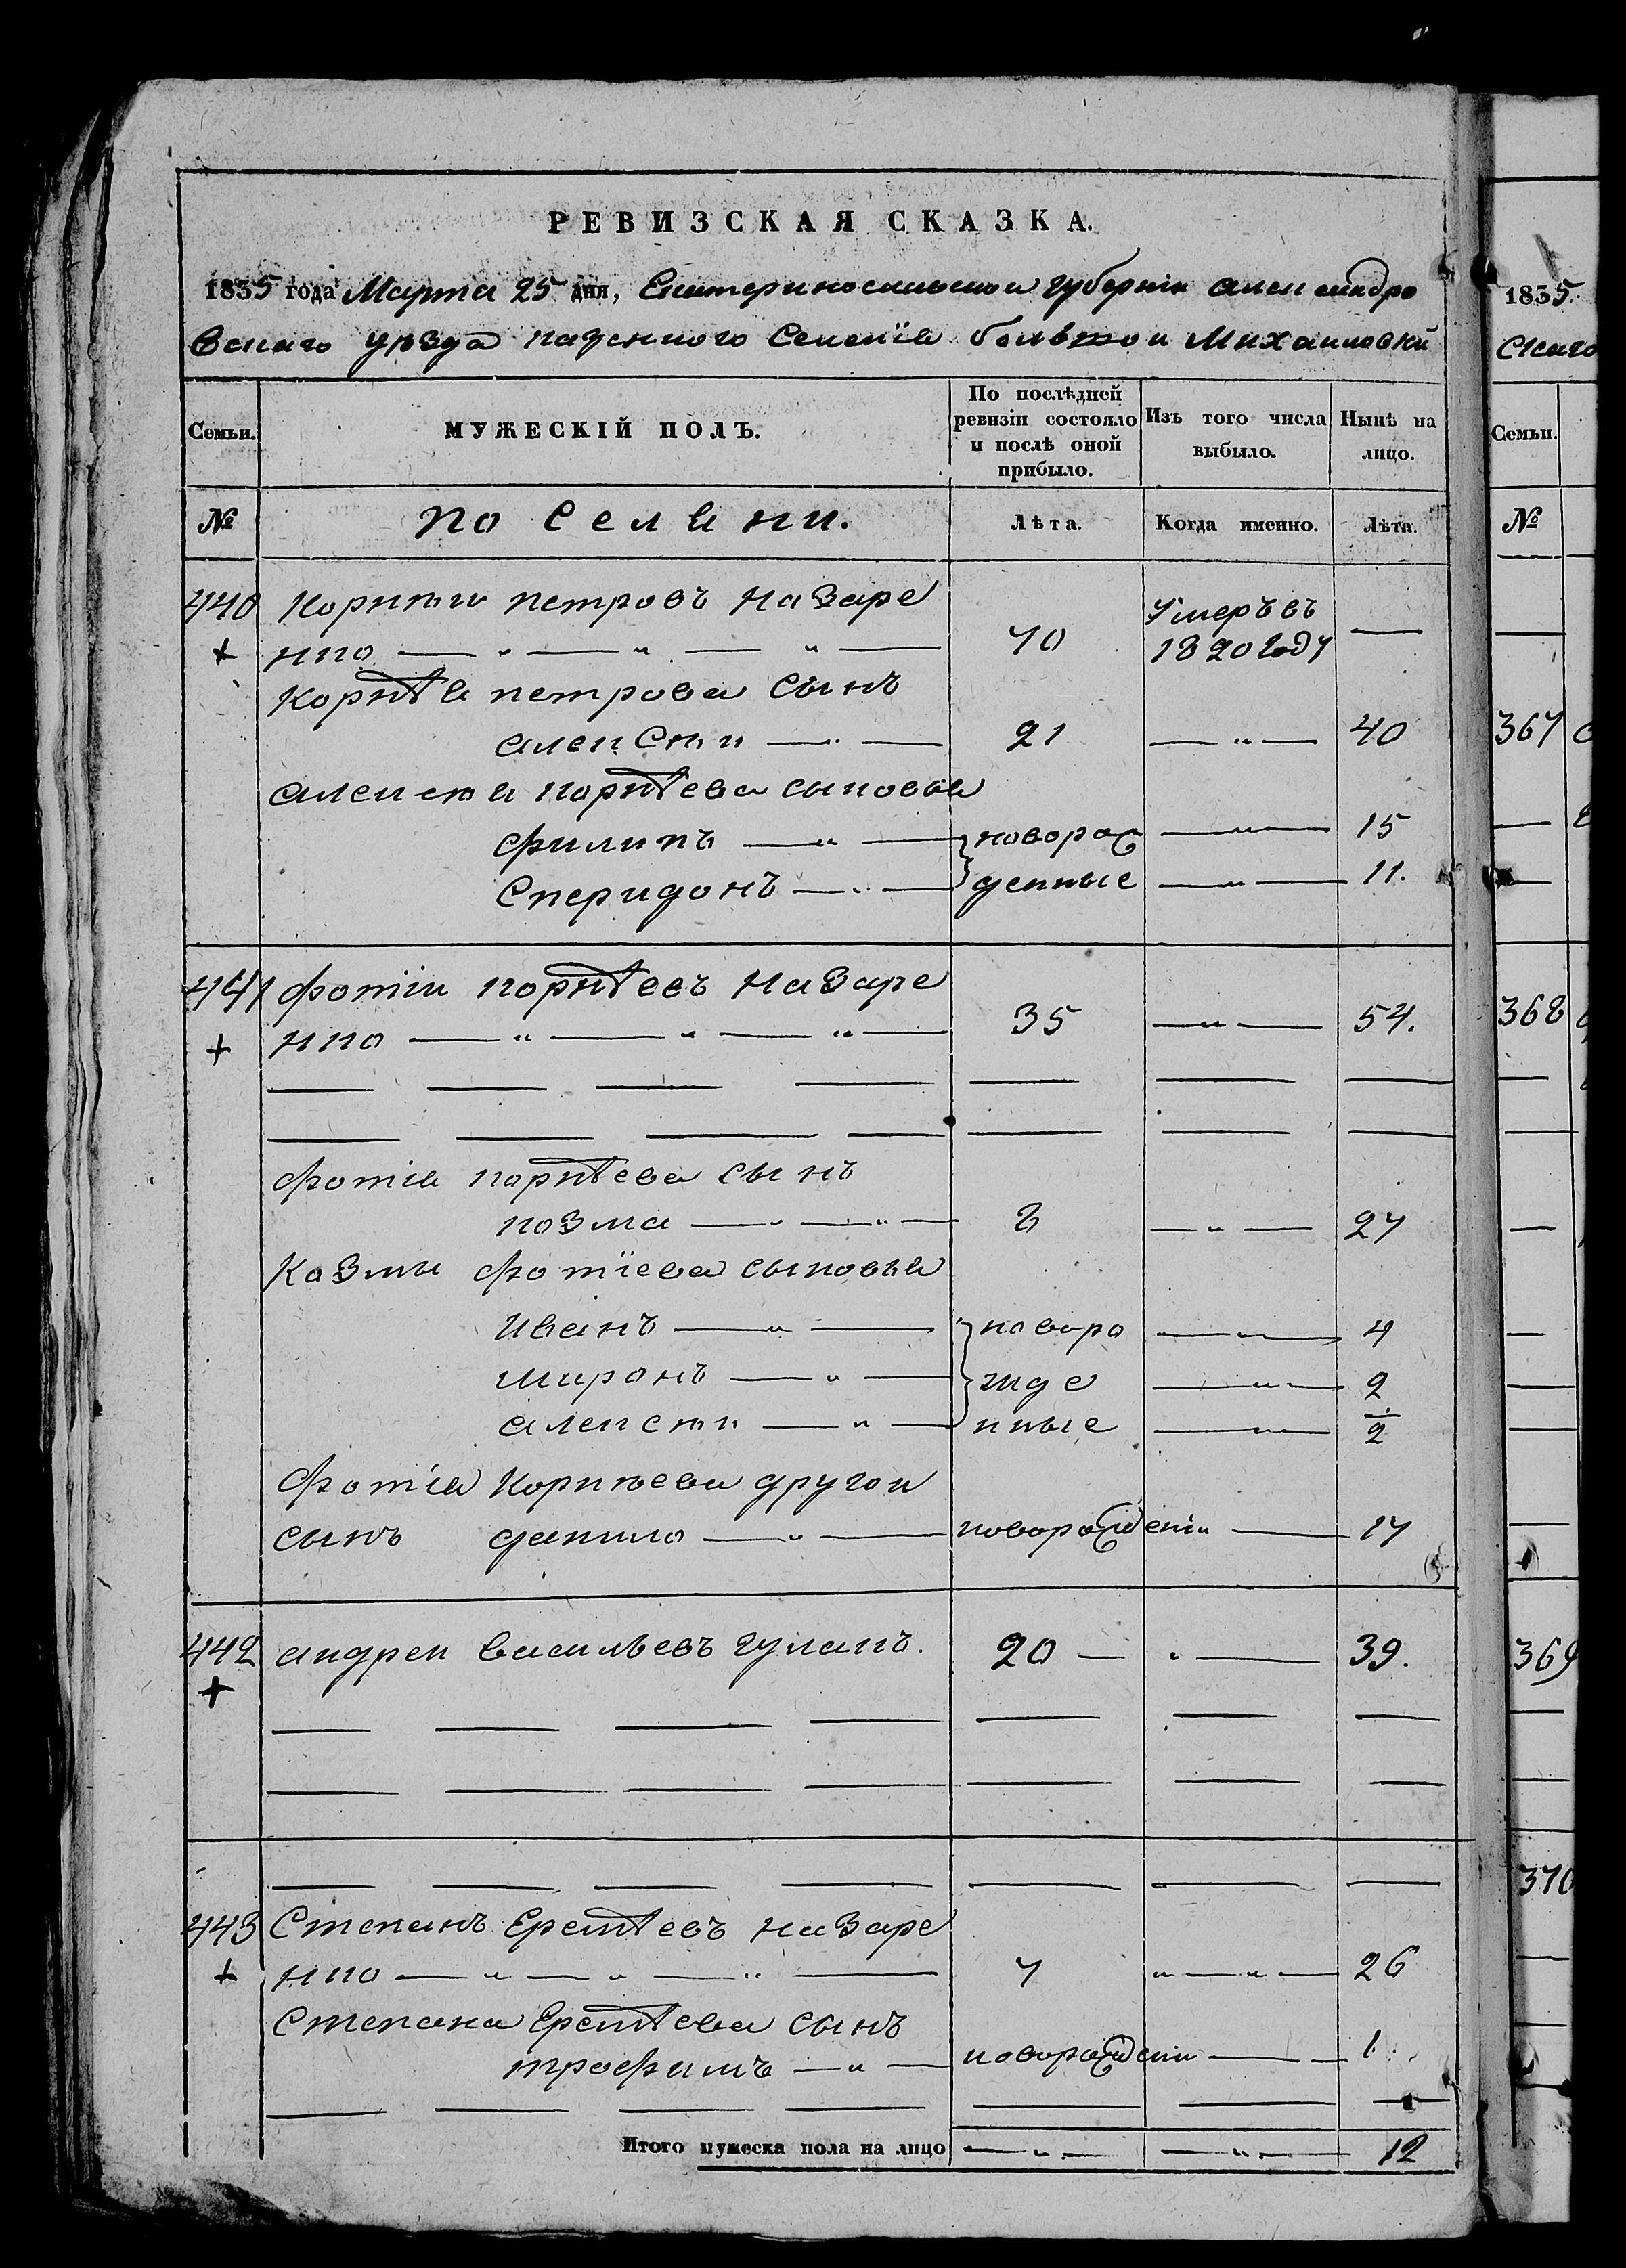 РЕВИЗСКАЯ СКАЗКА.
1835 года Марта 25 дня, Екатериносласкои губернiи александро
вскаго уѣзда казенного Селенiя большои Михаиловки
Семьи.
МУЖЕСКIЙ ПОЛЪ.
По послѣдней ревизiи состояло и послѣ оной прибыло.
Изъ того числа выбыло.
Нынѣ на лицо.
№
поселяни.
Лѣта.
Когда именно.
Лѣта.
440 Корнѣи петровъ Назаре
+ нко 70 Умеръ въ 1820 году —
Корнѣя петрова сынъ
алексѣи 21 — 40
алексѣя корнѣева сыновья
филипъ новорож — 15
Сперидонъ денные — 11.
441 фотiи корнѣевъ Назаре
+ нко 35 — 54.
фотiя корнѣева сынъ
козма 8 — 27
Козмы фотiева сыновья
Иванъ новоро — 4
миронъ жде — 2
алексѣи нные — 2
Фотiя Корнѣева другои
сынъ данило новорожден — 17
442 андреи васильевъ гулакъ. 20 — 39.
+
443 Степанъ Еремѣевъ Назаре
+ нко 7 — 26
Степана Еремѣева сынъ
трофимъ новорожден — 1
Итого мужеска пола на лицо — — 12
1835
скаго
Семьи.
№
367
368
369
370